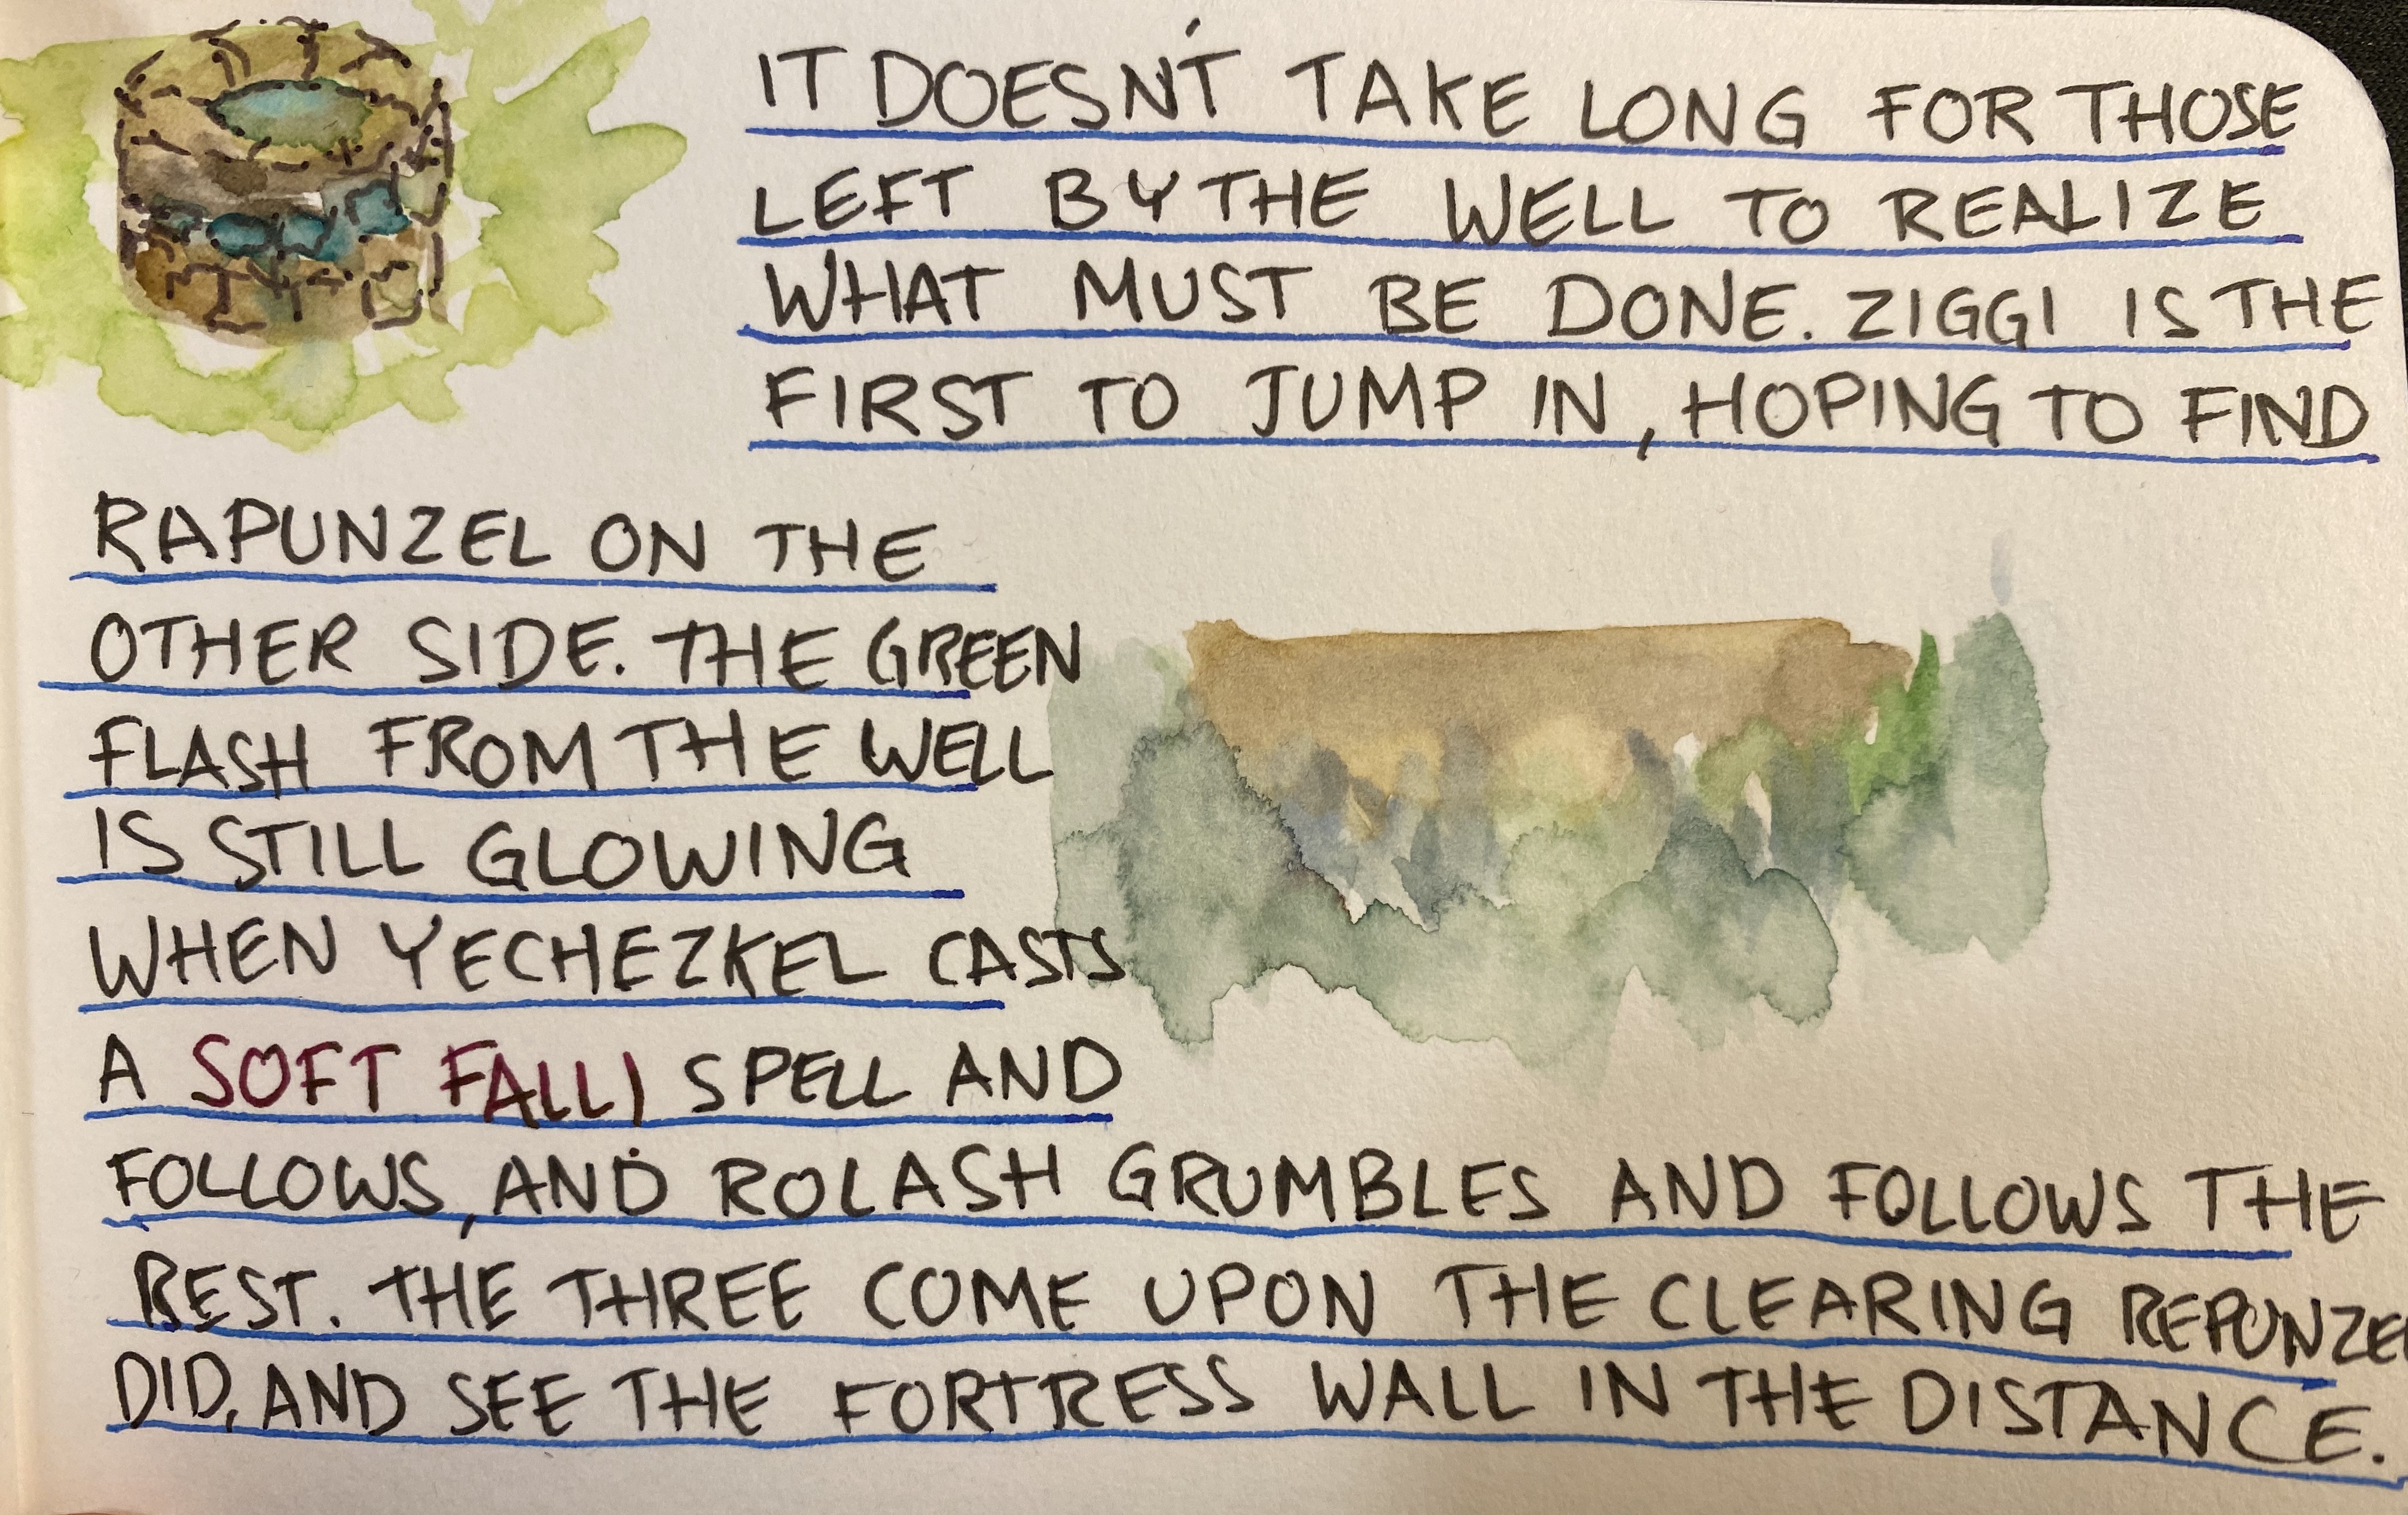 IT DOESN'T TAKE LONG FOR THOSE
LEFT BY THE WELL TO REALIZE
WHAT MUST BE DONE. ZIGGI IS THE
FIRST TO JUMP IN, HOPING TO FIND
RAPUNZEL ON THE
OTHER SIDE. THE GREEN
FLASH FROM THE WELL
IS STILL GLOWING
WHEN YECHEZKEL CASTS
A SOFT FALL) SPELL AND
FOLLOWS, AND ROLASH GRUMBLES AND FOLLOWS THE
REST. THE THREE COME UPON THE CLEARING REPUNZEL
DID, AND SEE THE FORTRESS WALL IN THE DISTANCE.